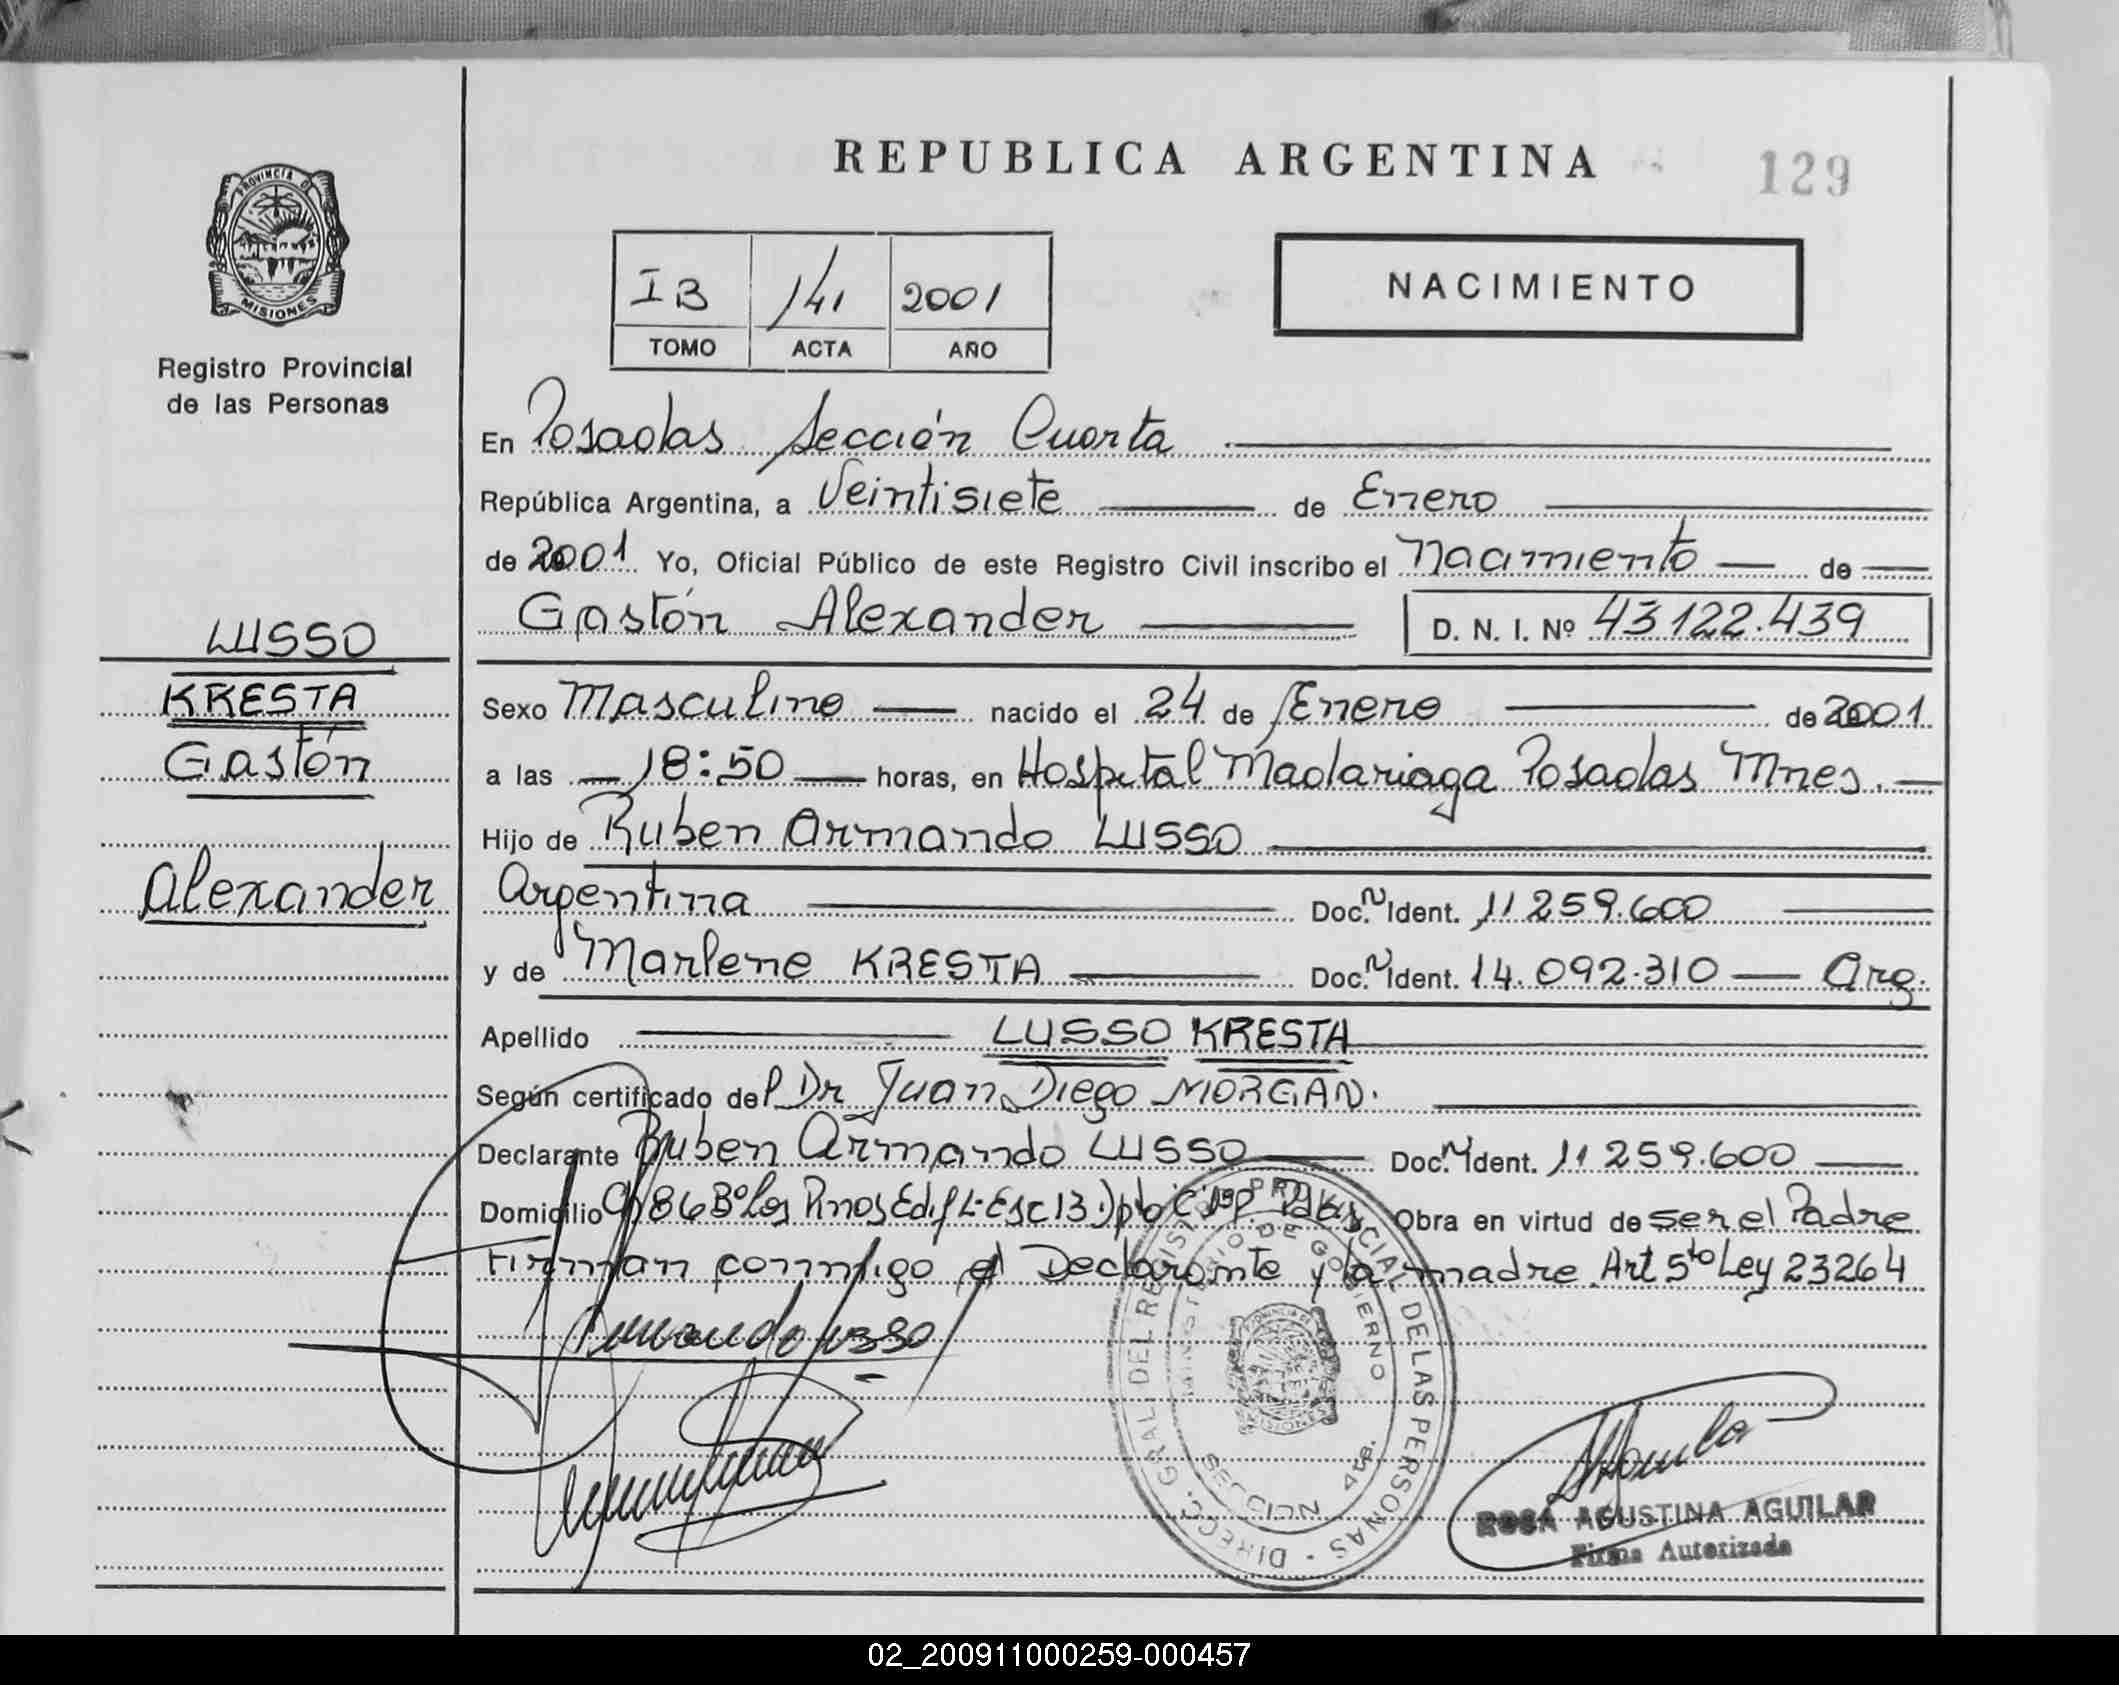 REPUBLICA ARGENTINA
129
PROVINCIA D
MISIONES
Registro Provincial
de las Personas
IB 141 2001
TOMO ACTA AÑO
NACIMIENTO
En Posadas Sección Cuarta
República Argentina, a Veintisiete de Enero
de 2001 Yo, Oficial Público de este Registro Civil inscribo el Nacimiento de
Gastón Alexander D. N. I. Nº 43.122.439
LUSSO
KRESTA
Gastón
Alexander
Sexo Masculino nacido el 24 de Enero de 2001
a las 18:50 horas, en Hospital Madariaga Posadas Mnes.
Hijo de Ruben Armando LUSSO
Argentina Doc. N Ident. 11.259.600
y de Marlene KRESTA Doc. N Ident. 14.092.310 Arg.
Apellido LUSSO KRESTA
Según certificado del Dr Juan Diego MORGAN.
Declarante Ruben Armando LUSSO Doc. N Ident. 11.259.600
Domicilio 86 Bº Los Pinos Edif Esc 13 Dpto C Pdas Obra en virtud de ser el Padre
Firman conmigo el Declarante y la madre Art 5to Ley 23264
Armando Lusso
DIRECC. GRAL. DEL REGISTRO PROVINCIAL DE LAS PERSONAS
MINISTERIO DE GOBIERNO
SECCION 4ta.
ROSA AGUSTINA AGUILAR
Firma Autorizada
02_200911000259-000457